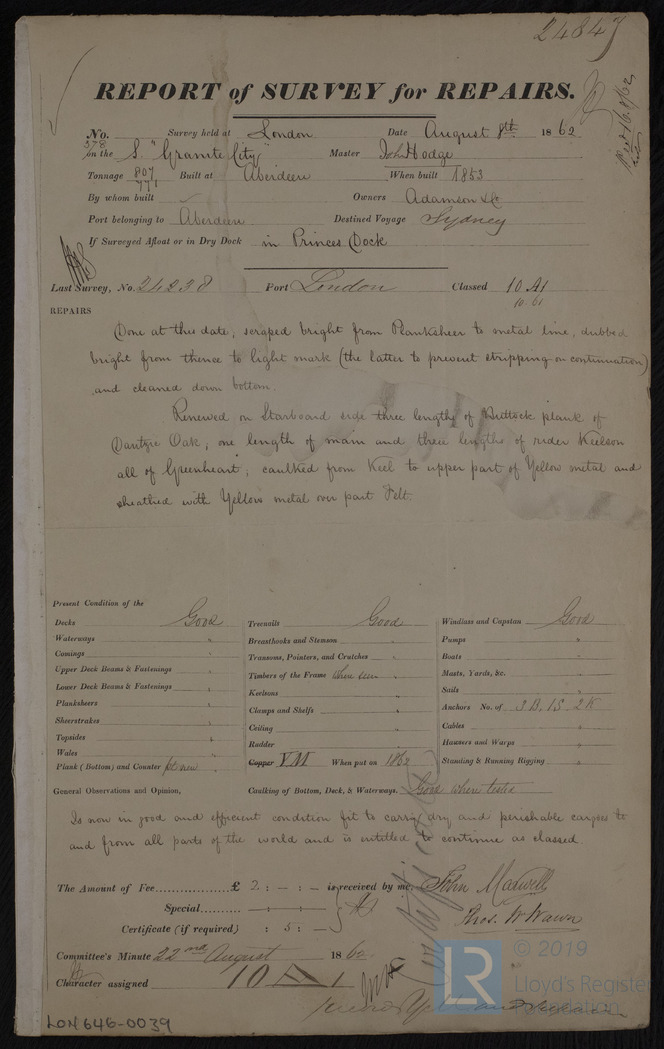 24847
REPORT of SURVEY for REPAIRS.
No. 378 Survey held at London Date August 8th 1862
on the S. "Granite City" Master John Hodge
Tonnage 807 771 Built at Aberdeen When built 1853
By whom built Owners Adamson & Co
Port belonging to Aberdeen Destined Voyage Sydney
If Surveyed Afloat or in Dry Dock in Princes Dock
Last Survey, No. 24238 Port London Classed 10 A1
10.61
REPAIRS
Done at this date, scraped bright from Planksheer to metal line, dubbed
bright from thence to light mark (the latter to prevent stripping on continuation)
and cleaned down bottom.
Renewed on Starboard side three lengths of Buttock plank of
Dantzic Oak, one length of main and three lengths of rider Keelson
all of Greenheart, caulked from Keel to upper part of Yellow metal and
sheathed with Yellow metal over part Felt.
Present Condition of the
Decks Good
Waterways "
Comings "
Upper Deck Beams & Fastenings "
Lower Deck Beams & Fastenings "
Planksheers "
Sheerstrakes "
Topsides "
Wales "
Plank (Bottom) and Counter pt new "
Treenails Good
Breasthooks and Stemson "
Transoms, Pointers, and Crutches "
Timbers of the Frame where seen "
Keelsons "
Clamps and Shelfs "
Ceiling "
Rudder "
Copper YM When put on 1862
Windlass and Capstan Good
Pumps "
Boats "
Masts, Yards, &c. "
Sails "
Anchors No. of 3B. 1S. 2K
Cables "
Hawsers and Warps "
Standing & Running Rigging "
General Observations and Opinion, Caulking of Bottom, Deck, & Waterways. Good where tested
Is now in good and efficient condition fit to carry dry and perishable cargoes to
and from all parts of the world and is entitled to continue as classed.
The Amount of Fee £ 2 : - : - is received by me, John Maxwell
Special - : - : - Thos. W Wawn
Certificate (if required) : 5 : -
Committee's Minute 22nd August 1862
Character assigned 10 A 1
LON646-0039
LR
© 2019
Lloyd's Register
Foundation